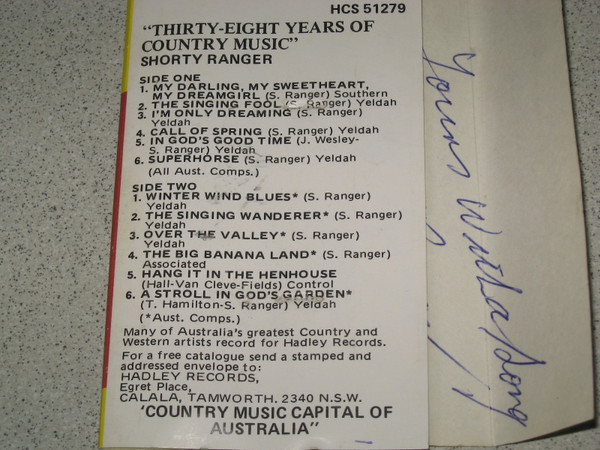 HCS 51279
"THIRTY-EIGHT YEARS OF
COUNTRY MUSIC"
SHORTY RANGER
SIDE ONE
1. MY DARLING, MY SWEETHEART,
MY DREAMGIRL (S. Ranger) Southern
2. THE SINGING FOOL (S. Ranger) Yeldah
3. I'M ONLY DREAMING (S. Ranger)
Yeldah
4. CALL OF SPRING (S. Ranger) Yeldah
5. IN GOD'S GOOD TIME (J. Wesley-
S. Ranger) Yeldah
6. SUPERHORSE (S. Ranger) Yeldah
(All Aust. Comps.)
SIDE TWO
1. WINTER WIND BLUES* (S. Ranger)
Yeldah
2. THE SINGING WANDERER* (S. Ranger)
Yeldah
3. OVER THE VALLEY* (S. Ranger)
Yeldah
4. THE BIG BANANA LAND* (S. Ranger)
Associated
5. HANG IT IN THE HENHOUSE
(Hall-Van Cleve-Fields) Control
6. A STROLL IN GOD'S GARDEN*
(T. Hamilton-S. Ranger) Yeldah
(*Aust. Comps.)
Many of Australia's greatest Country and
Western artists record for Hadley Records.
For a free catalogue send a stamped and
addressed envelope to:
HADLEY RECORDS,
Egret Place,
CALALA, TAMWORTH. 2340 N.S.W.
'COUNTRY MUSIC CAPITAL OF
AUSTRALIA"
Yours With a Song